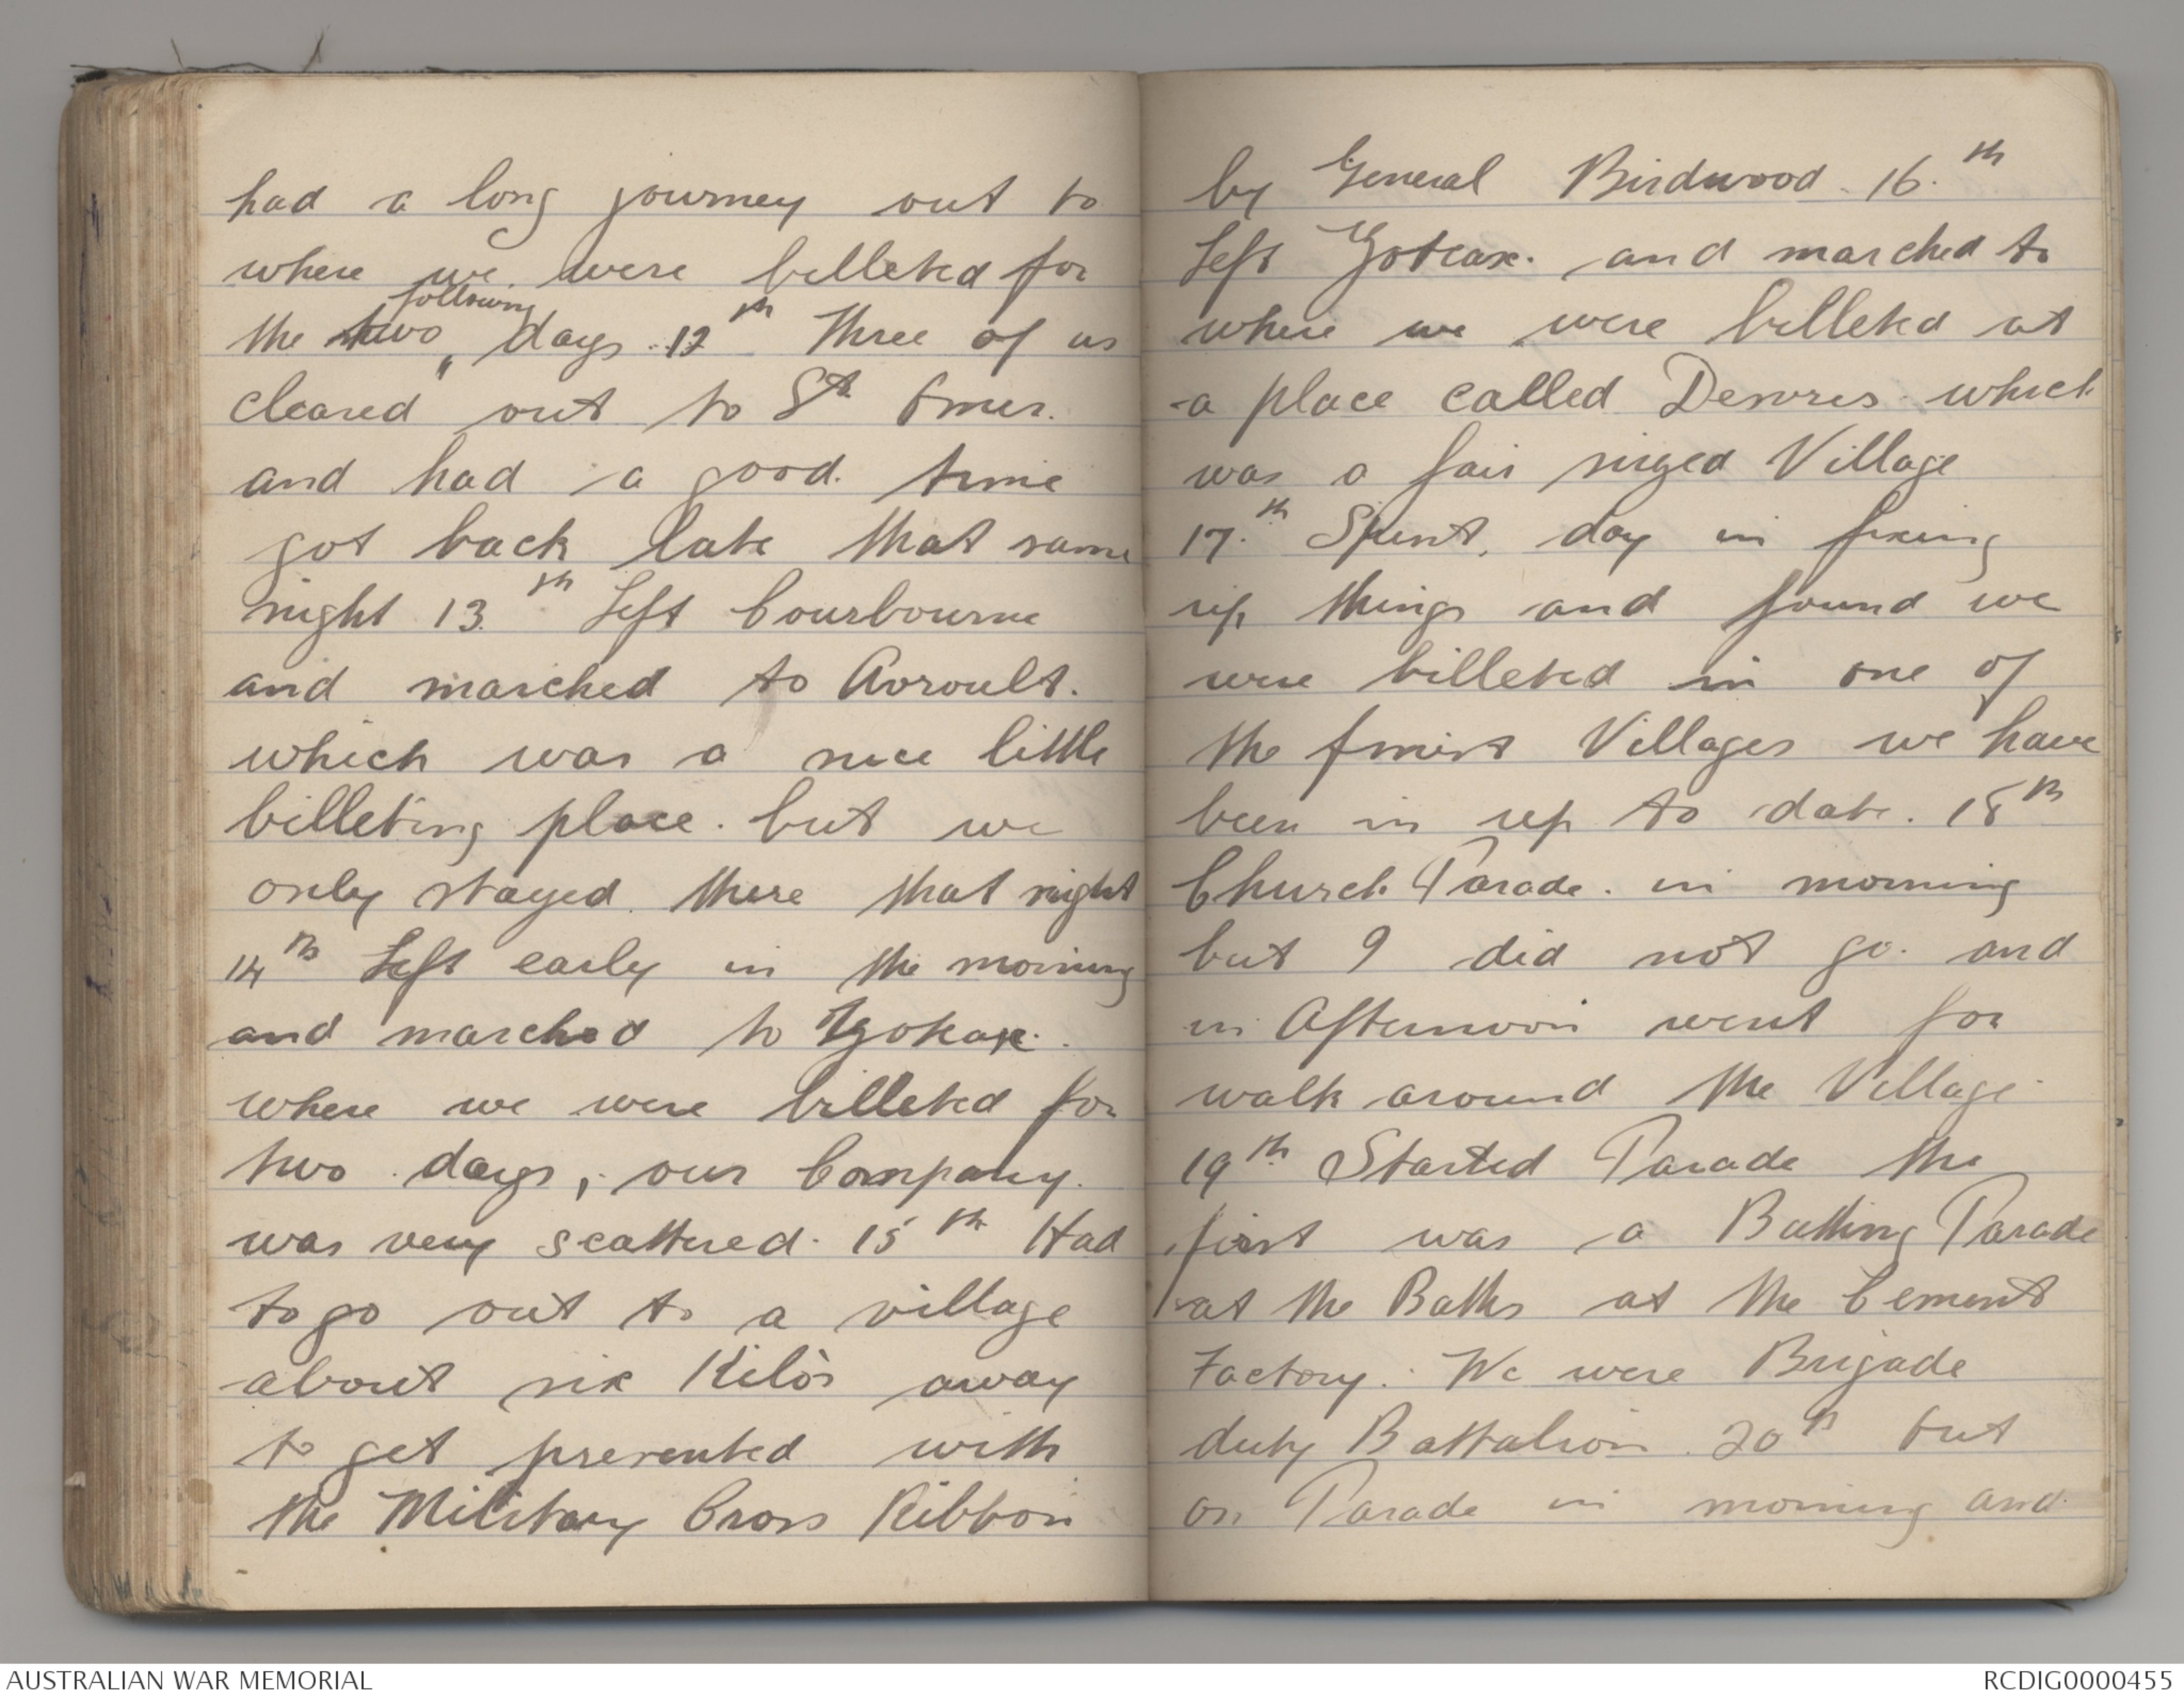 had a long journey out to
where we were billeted for
following
the two days. 12th Three of us
cleared out to St. Omer.
and had a good. time
got back late that same
night 13.th Left Courbourne
and marched to Avroult.
which was a nice little
billeting place. but we
only stayed. there that night
14th Left early in the morning
and marched to
where we were billeted for
two days, our Company.
was very scattered. 15th Had
to go out to a village
about six Kilo's away
to get presented with
the Military Cross Ribbon
by General Birdwood. 16.th
Left and marched to
where we were billeted at
a place called Desvres. which
was a fair sized Village
17.th Spent. day in fixing
up things and found we
were billeted in one of
the finest Villages we have
been in up to date. 18th
Church Parade. in morning
but I did not go. and
in Afternoon went for
walk around the Village
19th Started Parade the
first was a Bathing Parade
at the Baths at the Cement
Factory. We were Brigade
duty Battalion. 20th Out
on Parade in morning and
AUSTRALIAN WAR MEMORIAL
RCDIG0000455